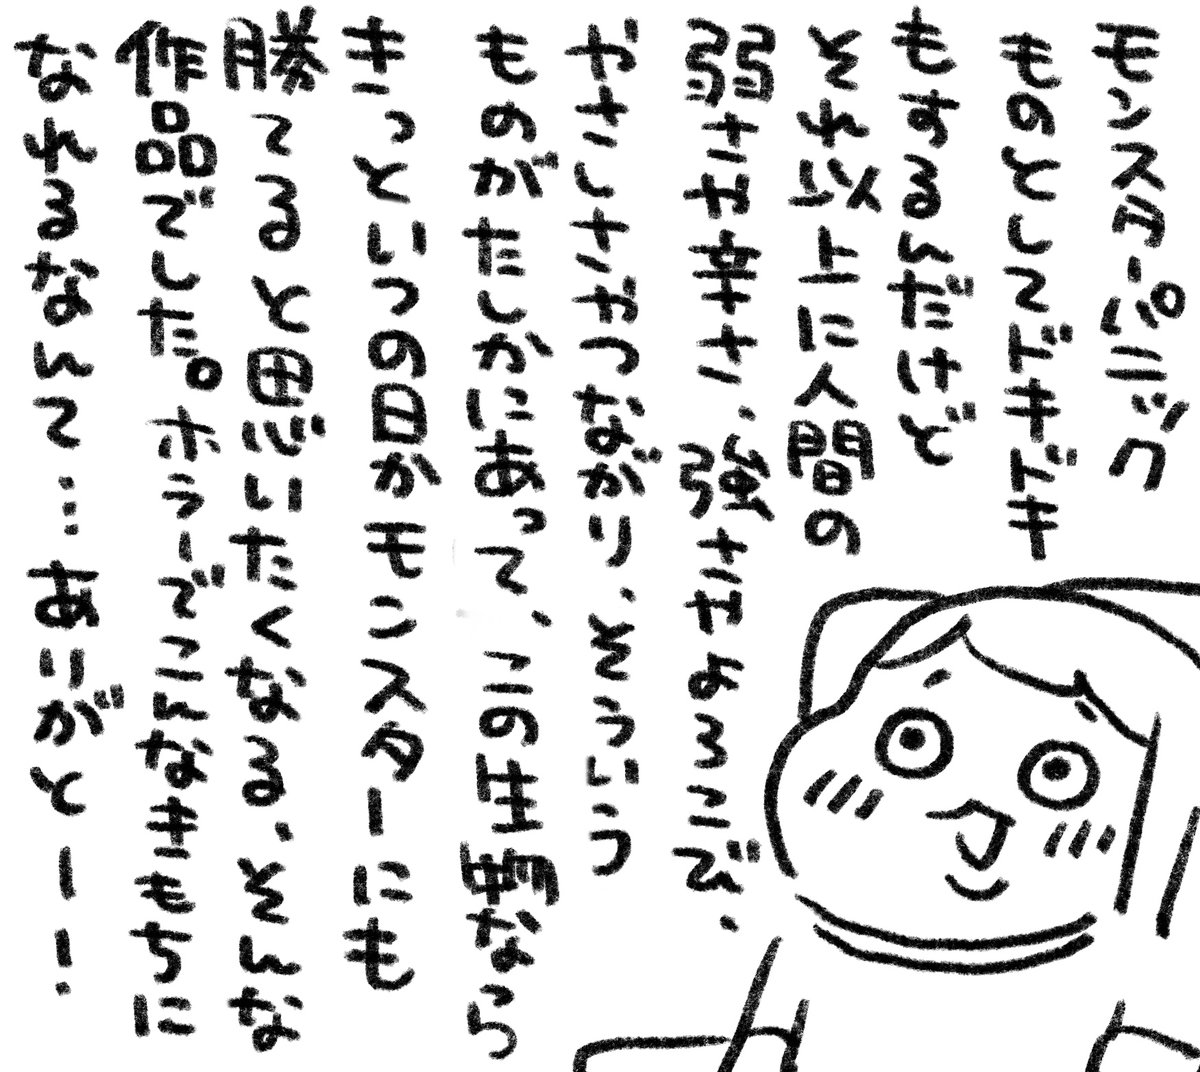 モンスターパニック
ものとしてドキドキ
もするんだけど
それ以上に人間の
弱さや辛さ、強さやよろこび、
やさしさやつながり、そういう
ものがたしかにあって、この生物なら
きっといつの日かモンスターにも
勝てると思いたくなる、そんな
作品でした。ホラーでこんなきもちに
なれるなんて…ありがとー！